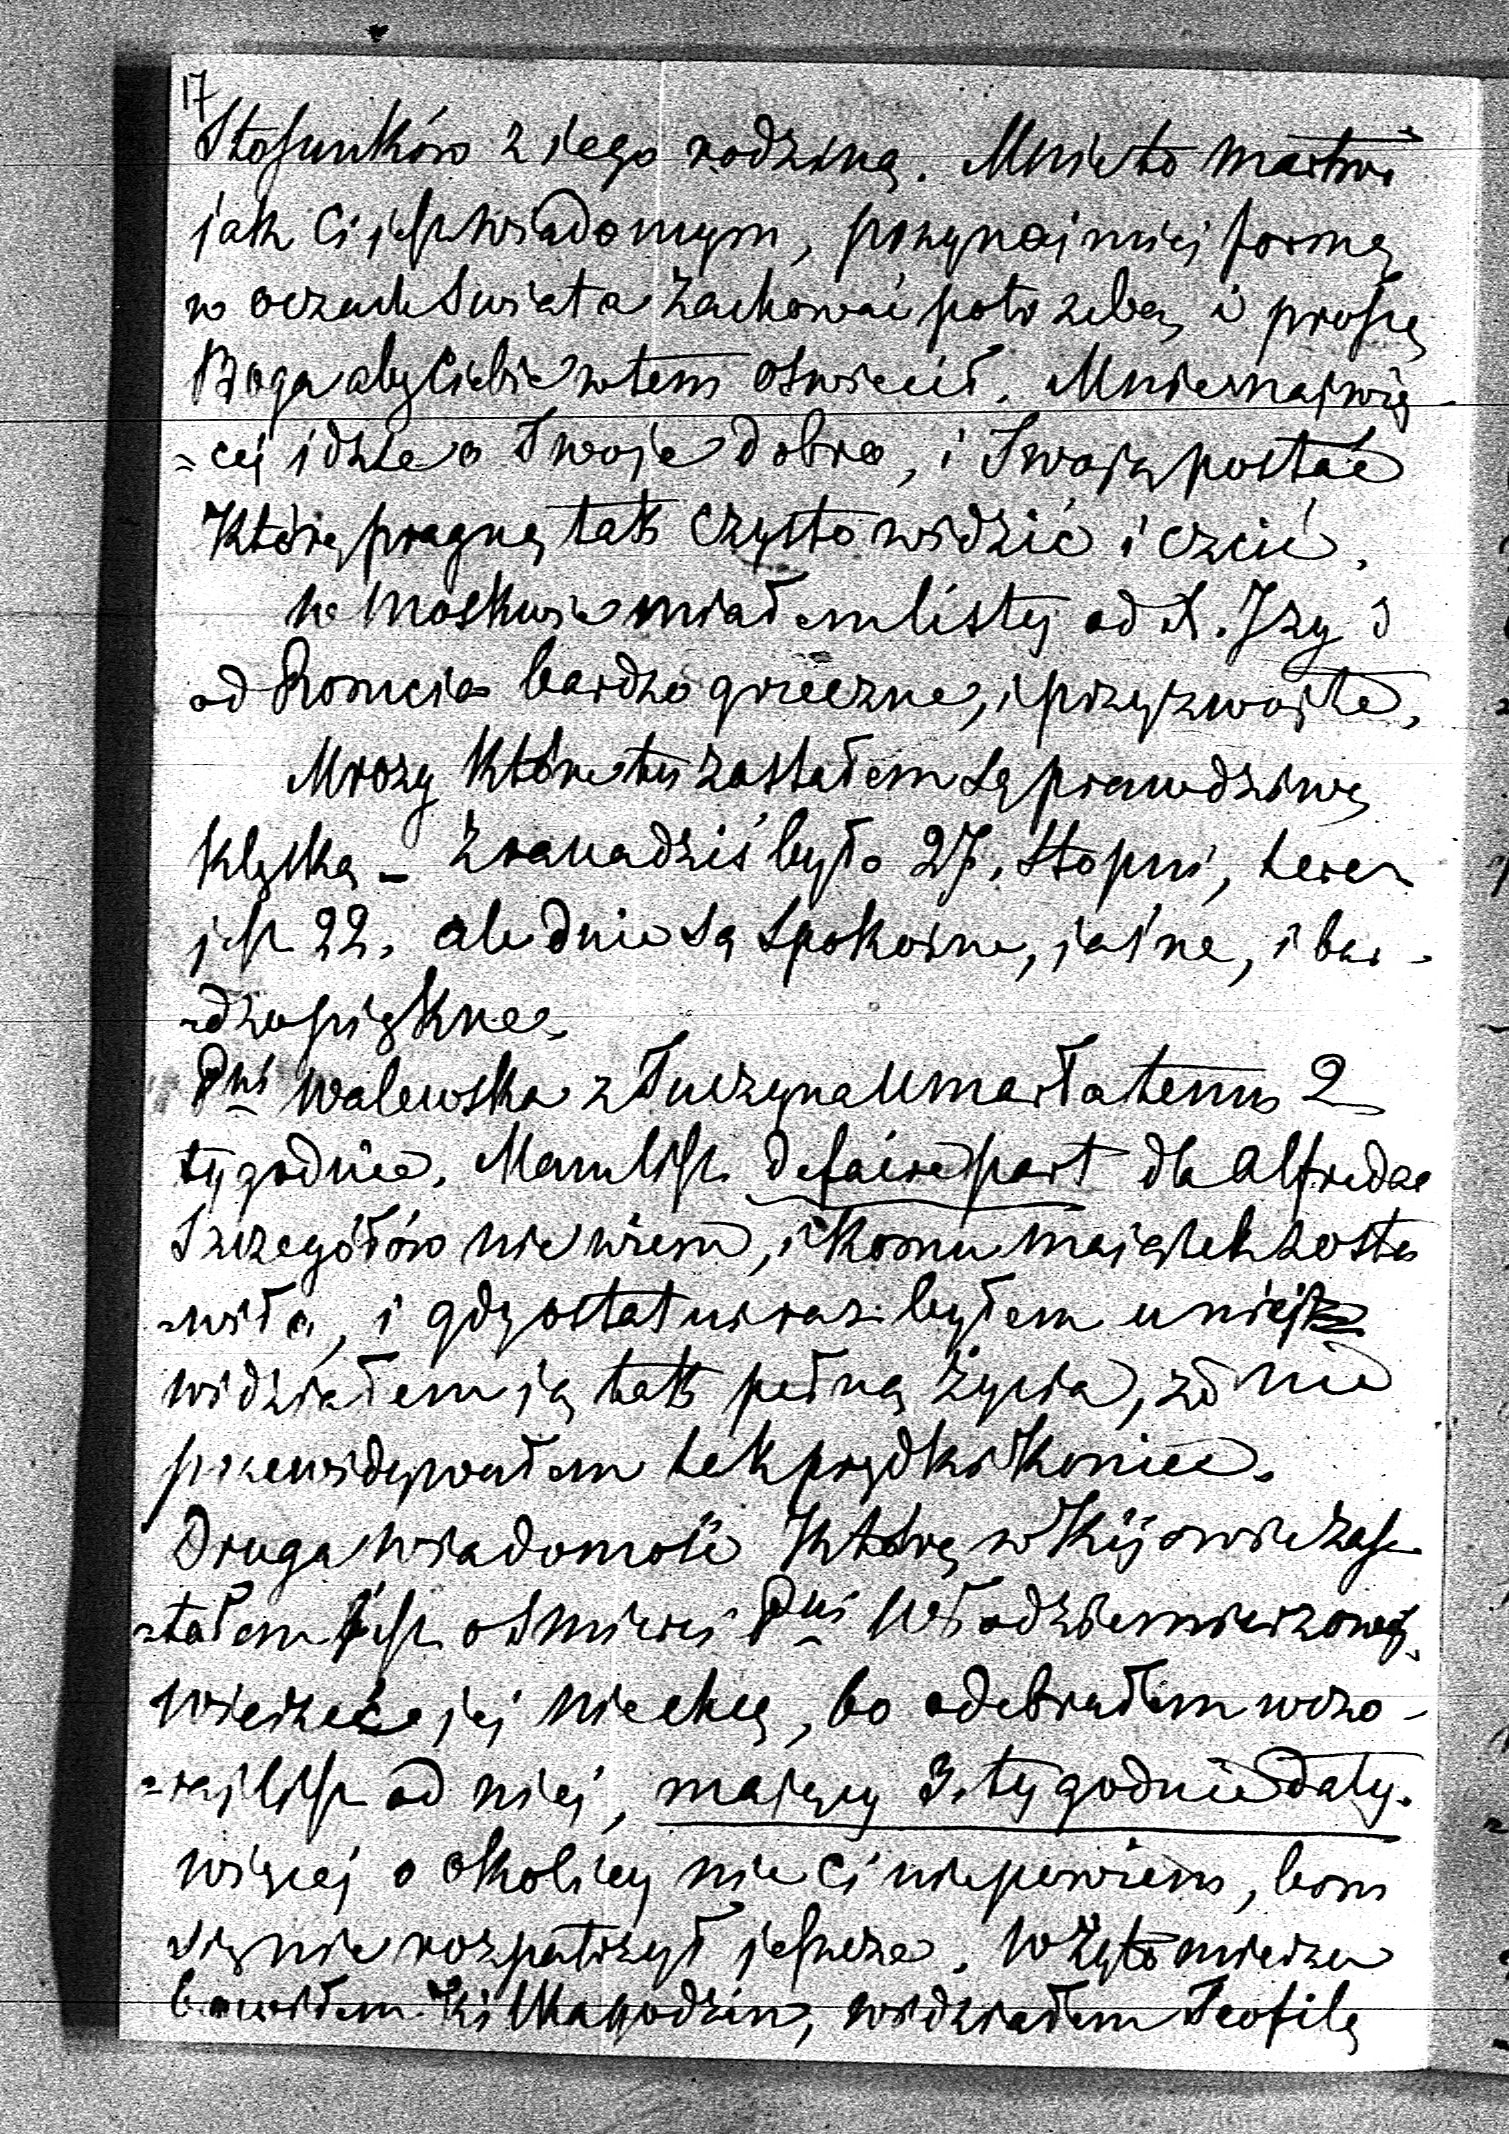 17
Stosunków z jego rodziną. Mnie to martwi
jak Ci jest wiadomym, przynajmniej formę
w oczach swiata zachować potrzeba, i proszę
Boga aby Ciebie w tem oswiecił. Mnie najwię
=cej idzie o Twoje dobro, i Twoją postać
Którą pragnę tak czysto widzić i czcić.
w Moskwie miałem listy od X. Izy i
od Romcia bardzo grzeczne, i przyzwoite.
Mrozy które tu zastałem są prawdziwą
klęską – z rana dziś było 27. stopni, teraz
jest 22. ale dnie są spokoine, jasne, i bar-
-dzo piękne.
Pni Walewska z Tuczyna umarła temu 2
tygodnie. Mam list de faire part dla Alfreda
Szczegółów nie wiem, i komu majątek zosta
-wiła, i gdy ostatni raz byłem u niej
widziałem ją tak pełną życia, że nie
przewidywałem tak prędki koniec.
Druga wiadomość którą w Kijowie zas
-tałem jest o śmierci Pni Włodzimierzowej
wierzeć jej nie chcę, bo odebrałem wczo-
-raj list od niej, mający 3. tygodnie daty.
więcej o okolicy nic Ci nie powiem, bom
się nie rozpatrzył jeszcze. w Żytomierzu
bawiłem kilka godzin, widziałem Teofilę